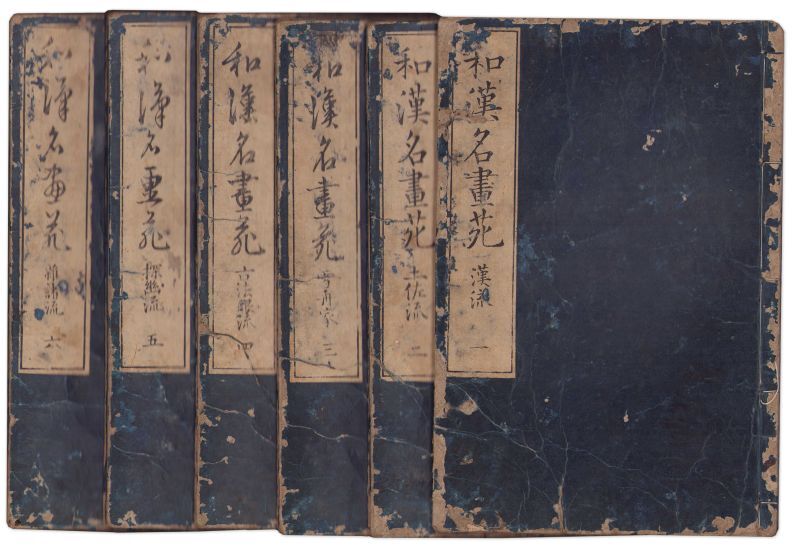 和漢名畫苑 漢流 一
和漢名畫苑 土佐流 二
和漢名畫苑 雪舟家 三
和漢名畫苑 古法眼流 四
漢名畫苑 探幽流 五
和漢名畫苑 雜諸流 六